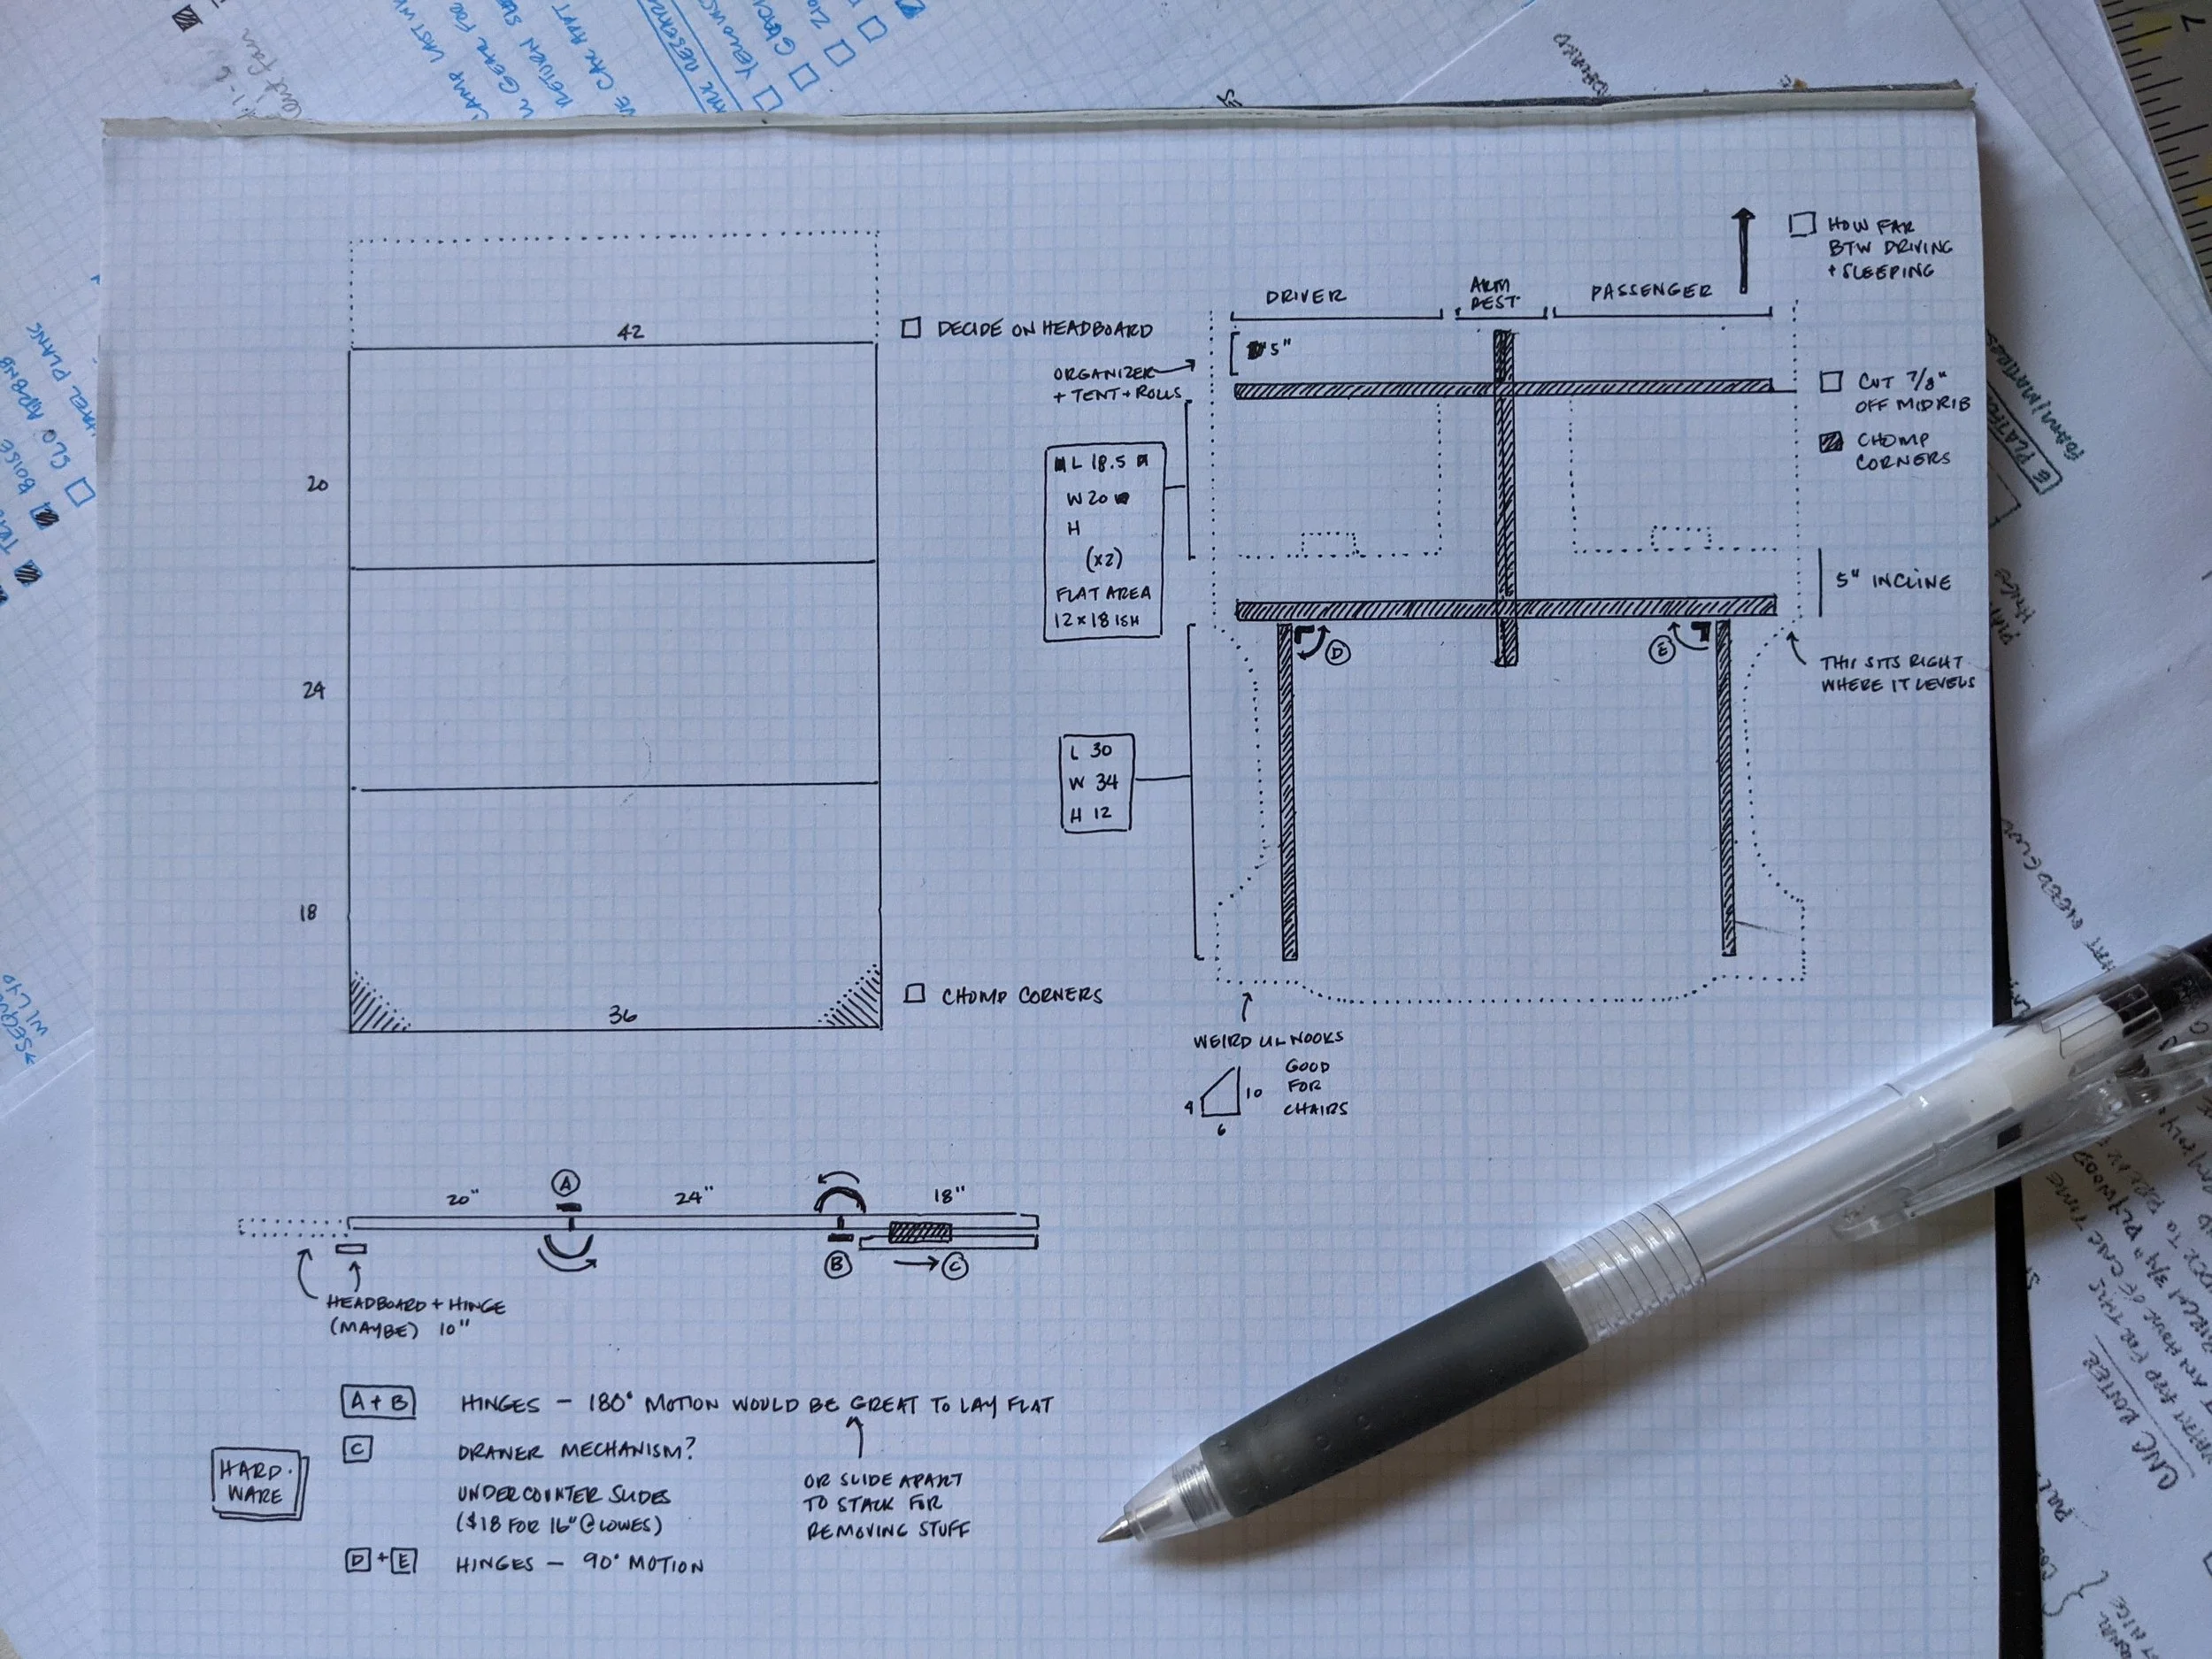 42
DECIDE ON HEADBOARD
20
24
18
36
CHOMP CORNERS
DRIVER
ARM
REST
PASSENGER
HOW FAR
BTW DRIVING
+ SLEEPING
5"
ORGANIZER
+ TENT + ROLLS
CUT 7/8"
OFF MIDRIB
CHOMP
CORNERS
L 18.5
W 20
H
(x2)
FLAT AREA
12 x 18 ISH
5" INCLINE
D
E
THIS SITS RIGHT
WHERE IT LEVELS
L 30
W 34
H 12
WEIRD LIL NOOKS
GOOD
FOR
CHAIRS
4
10
6
20"
A
24"
18"
B
C
HEADBOARD + HINGE
(MAYBE) 10"
A + B HINGES – 180° MOTION WOULD BE GREAT TO LAY FLAT
C DRAWER MECHANISM?
UNDERCOUNTER SLIDES
($18 FOR 16" @ LOWES)
OR SLIDE APART
TO STACK FOR
REMOVING STUFF
D + E HINGES – 90° MOTION
HARD-
WARE
BOISE
SLO AIRBNB
CNC ROUTER